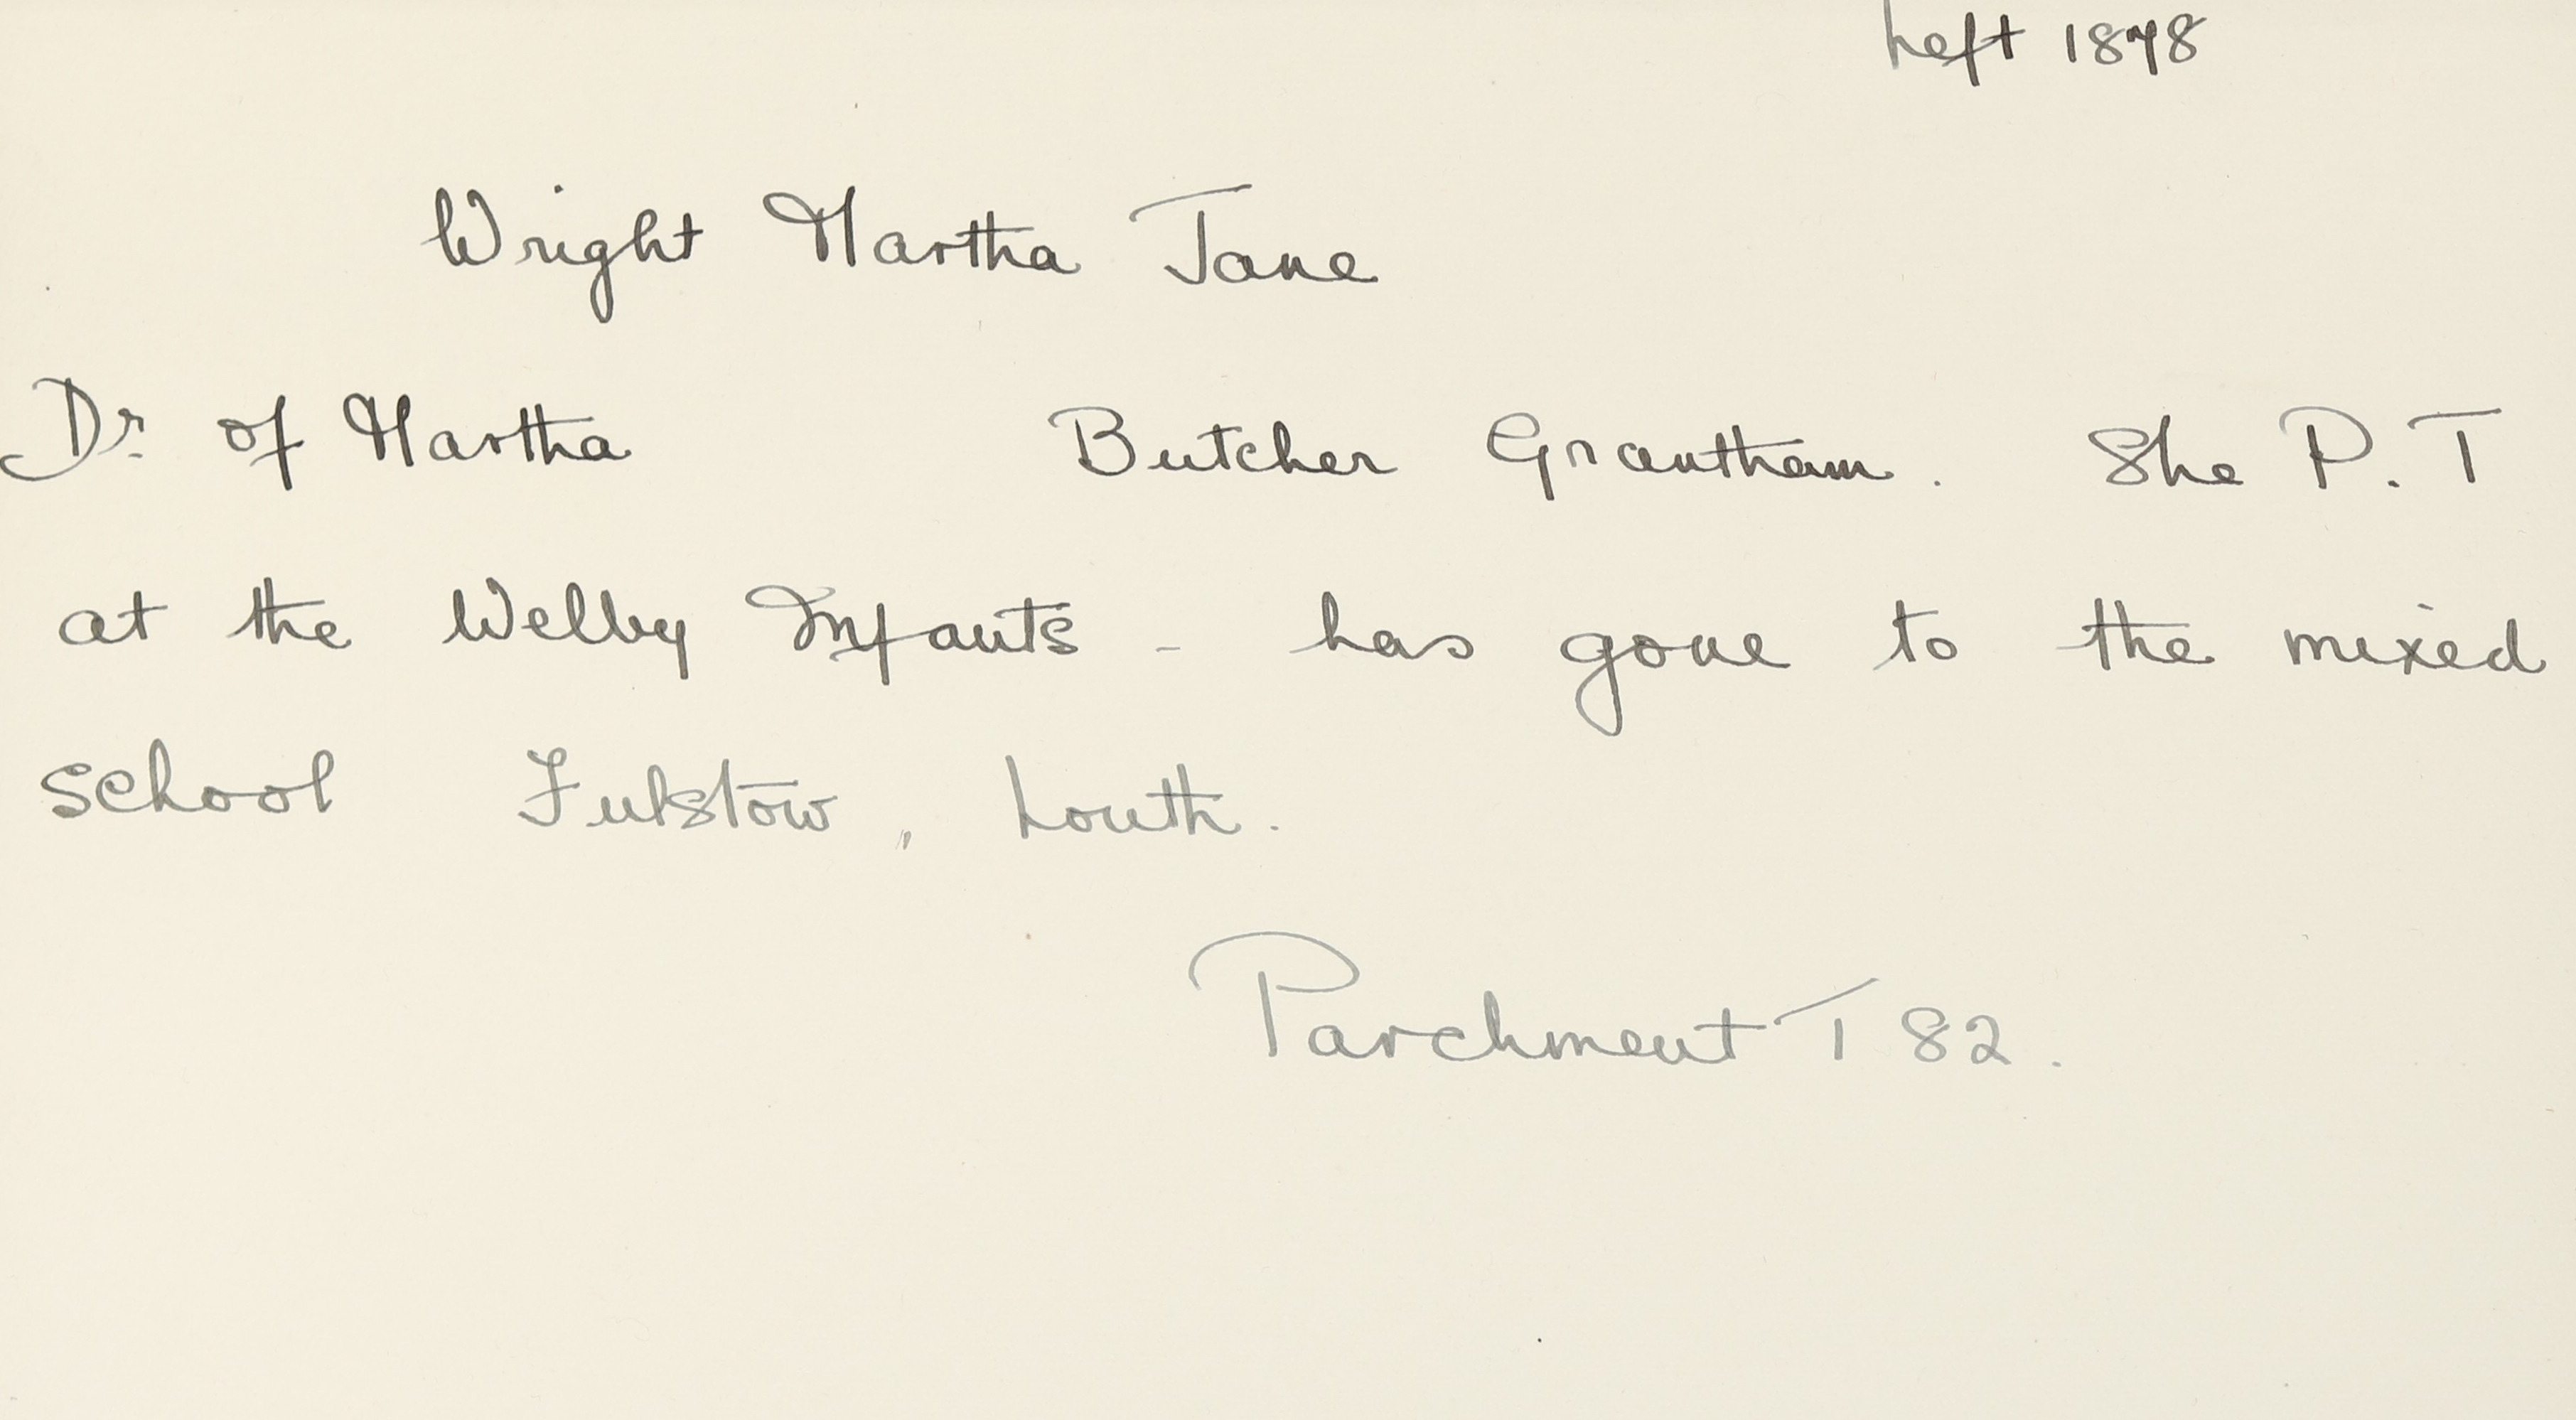 Left 1878
Wright Martha Jane
Dr. of Martha Butcher Grantham. She P.T
at the Welby Infants - has gone to the mixed
School Fulstow, Louth.
Parchment T 82.